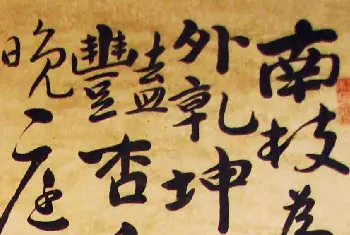 南枝
外乾坤
豔杏
晚庭